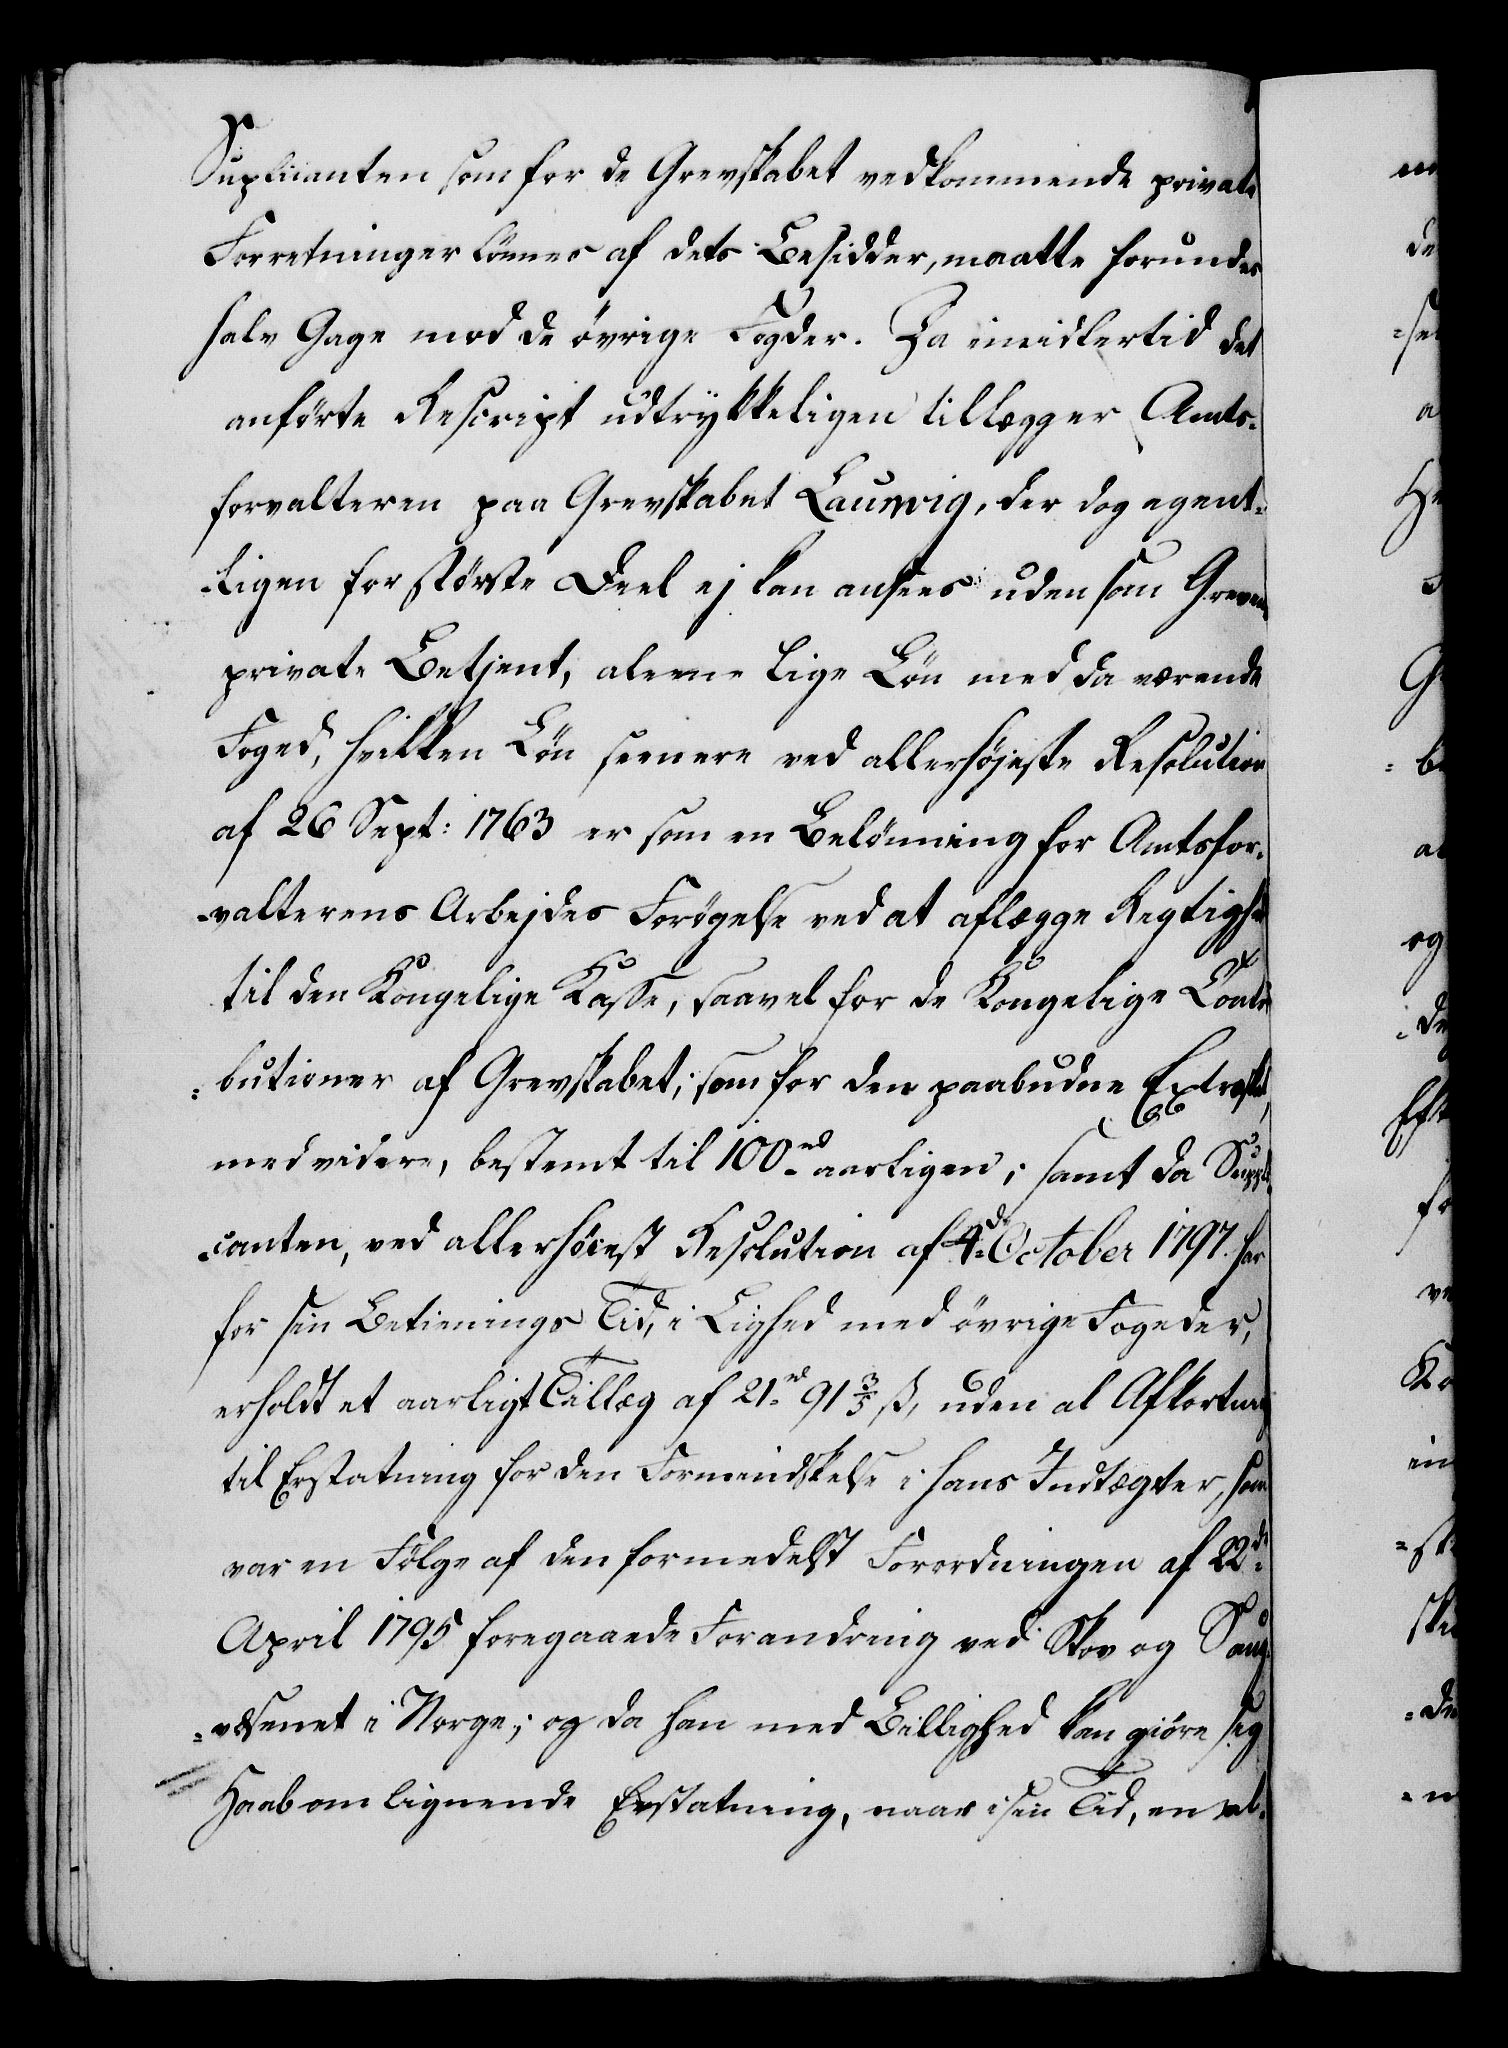 Suplicanten som for de Grevskabet vedkommende private
Forretninger lønnes af dets Besidder, maatte forundes
halv Gage mod de övrige Fogder. Da imidlertid det
anförte Rescript udtrykkeligen tillægger Amts-
forvalteren paa Grevskabet Laurwig, der dog egent-
-ligen for største Deel ej kan ansees uden som Grevens
private Betjent, aleene lige Lön med da værende
Foged, hvilken Lön seenere ved allerhøjeste Resolution
af 26 Sept: 1763 er som en Belønning for Amtsfor-
-valterens Arbejdes Forøgelse ved at aflægge Rigtighed
til den Kongelige Kasse, saavel for de Kongelige Contri
=butioner af Grevskabet, som for den paabudne Extraskat,
med videre, bestemt til 100 rd aarligen; samt da Suppli-
-canten, ved allerhöiest Resolution af 4de October 1797. har
for sin Betienings Tid, i Lighed med övrige Fogeder,
erholdt et aarligt Tillæg af 21 rd 91 3/5 ß, uden al Afkortning
til Erstatning for den Formindskelse i hans Indtægter, som
var en Følge af den formedelst Forordningen af 22de
April 1795 foregaaede Forandring ved Skov og Saug-
=væsenet i Norge; og da han med Billighed kan giöre sig
Haab om lignende Erstatning, naar i sin Tid, en al-
em
de
=se
a
He
G
= be
al
og
=de
Eft
fo
ve
Ko
in
=st
ske
=de
=n